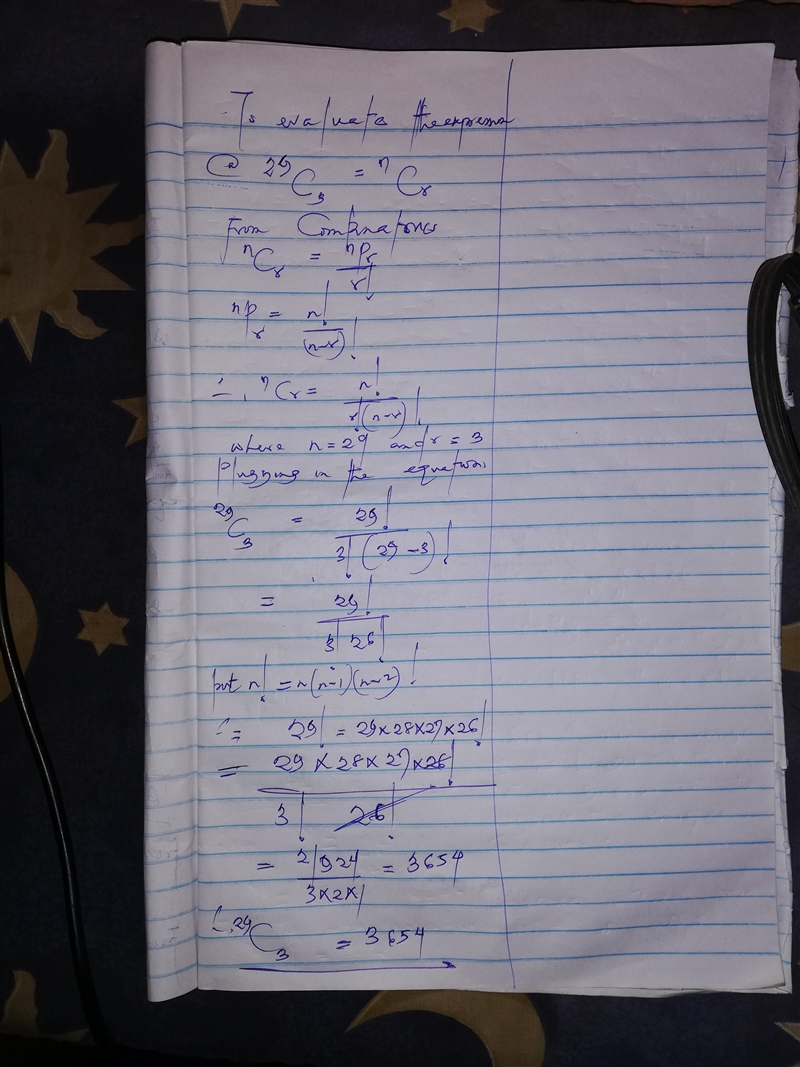 To evaluate the expression
(a) ²⁹C₃ = ⁿCᵣ
From Combinations
ⁿCᵣ = ⁿPᵣ / r!
ⁿPᵣ = n! / (n-r)!
∴ ⁿCᵣ = n! / r!(n-r)!
where n = 29 and r = 3
Plugging in the equation
²⁹C₃ = 29! / 3!(29-3)!
= 29! / 3! 26!
but n! = n(n-1)(n-2)!
∴ = 29! = 29×28×27×26!
= 29×28×27×26! / 3! 26!
= 21924 / 3×2×1 = 3654
∴ ²⁹C₃ = 3654